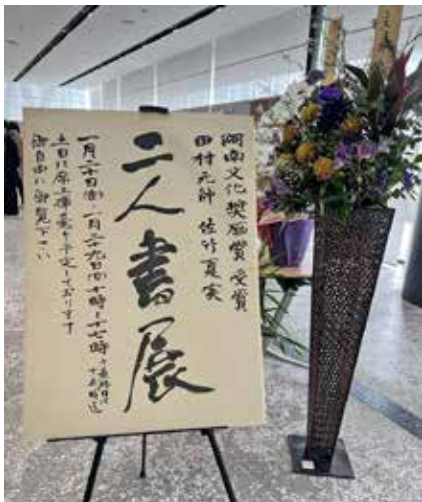 湘南文化奨励賞 受賞
田村 佐竹夏実
二人書展
一月二十日(金) 一月二十九日(日)十時〜十七時
最終日は
十五時迄
土日は席上揮毫を予定しております
御自由に御覧下さい